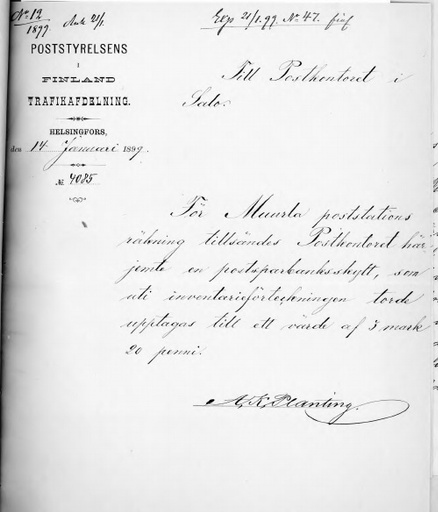 No 12 Ank 21/1. Exp 21/1.99 No 47.
1899
POSTSTYRELSENS
I
FINLAND
TRAFIKAFDELNING.
HELSINGFORS,
den 14 Januari 1899.
№ 4085
Till Postkontoret i
Salo.
För Muurla poststations
räkning tillsändes Postkontoret här-
jemte en postsparbanksskylt, som
uti inventarieförteckningen torde
upptagas till ett värde af 3 mark
20 penni.
A. K. Planting.